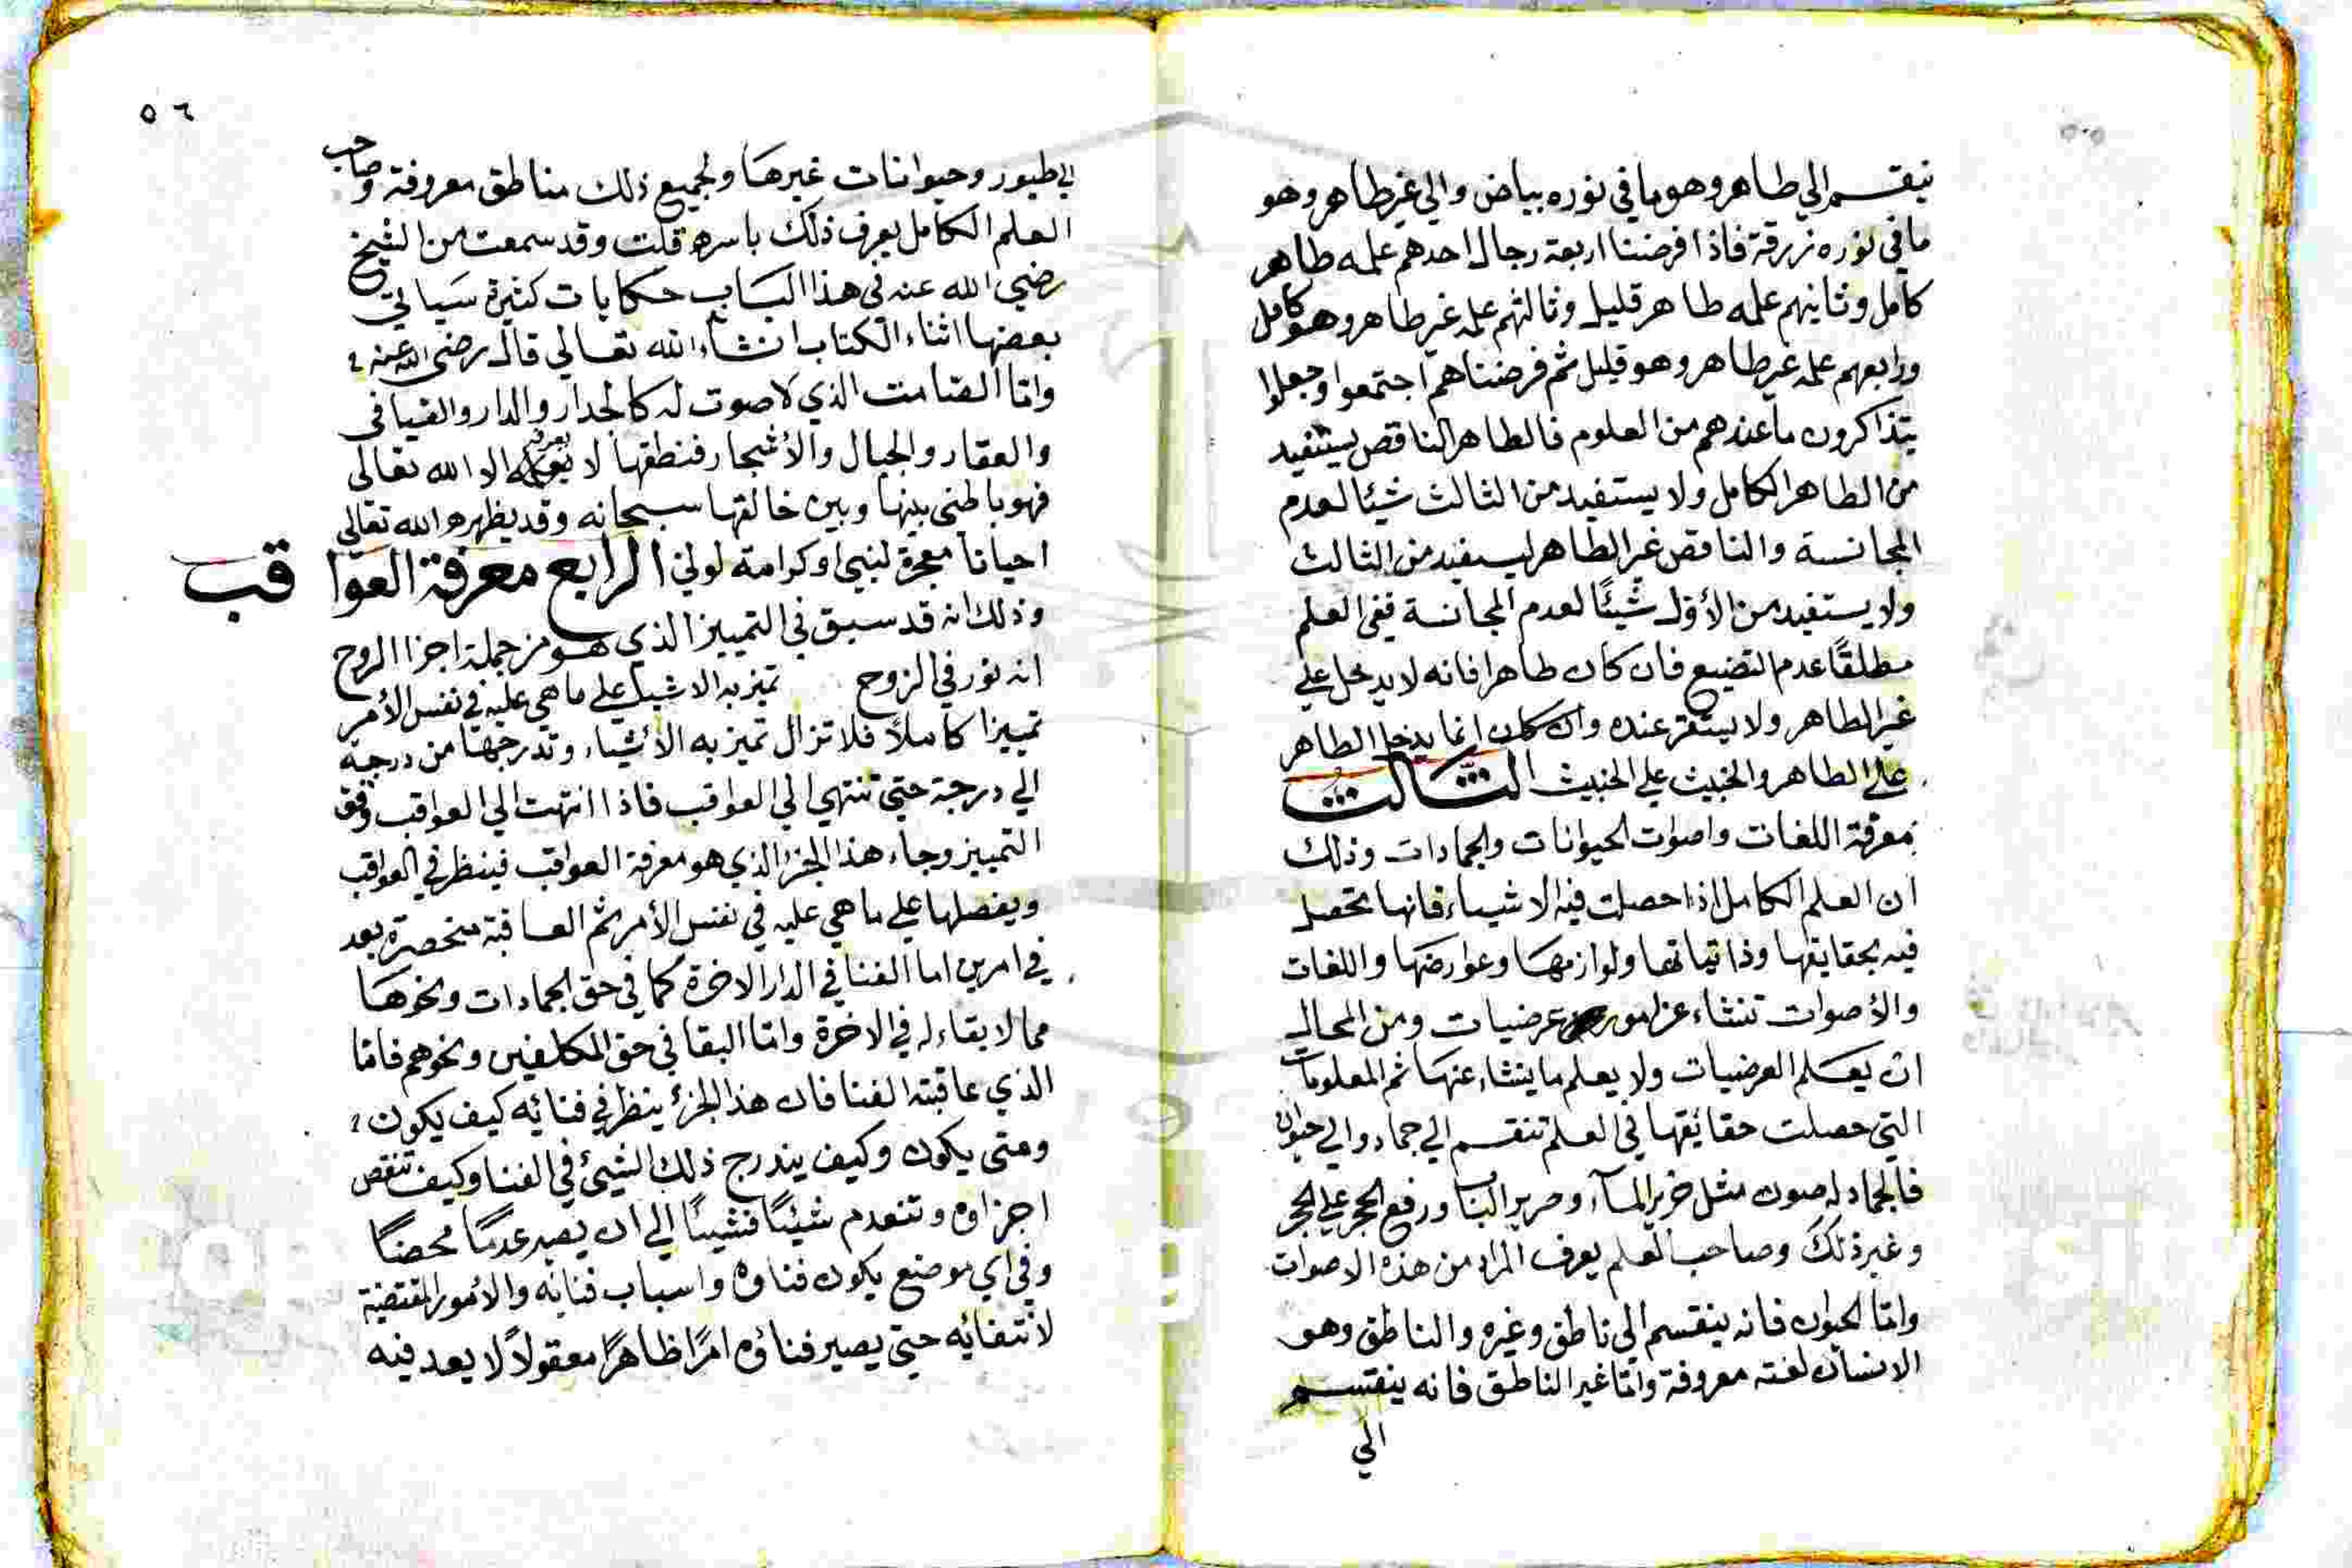 ينقسم الي طاهر وهو ما في نوره بياض والي غير طاهر وهو
ما في نوره زرقة فاذا فرضنا اربعة رجال احدهم علمه طاهر
كامل وثانيهم علمه طاهر قليل وثالثهم علمه غير طاهر وهو كامل
ورابعهم علمه غير طاهر وهو قليل ثم فرضناهم اجتمعوا وجعلوا
يتذاكرون ما عندهم من العلوم فالطاهر الناقص يستفيد
من الطاهر الكامل ولا يستفيد من الثالث شيئا لعدم
المجانسة والناقص غير الطاهر يستفيد من الثالث
ولا يستفيد من الأول شيئًا لعدم المجانسة ففي العلم
مطلقًا عدم التضييع فان كان طاهرا فانه لا يدخل علي
غير الطاهر ولا يستقر عنده وان كان انما يدخل الطاهر
علي الطاهر والخبيث علي الخبيث الثالث
معرفة اللغات واصوات الحيوانات والجمادات وذلك
ان العلم الكامل اذا حصلت فيه الاشياء فانها تحصل
فيه بحقايقها وذاتياتها ولوازمها وعوارضها واللغات
والأصوات تنشاء عن امور عرضيات ومن المحال
ان يعلم العرضيات ولا يعلم ما ينشاء عنها ثم المعلومات
التي حصلت حقائقها في العلم تنقسم الي جماد والي حيوان
فالجماد له صوت مثل خرير المآء وصرير الباب ورفع الحجر علي الحجر
وغير ذلك وصاحب العلم يعرف المراد من هذه الاصوات
واما الحيوان فانه ينقسم الي ناطق وغيره والناطق وهو
الانسان لغته معروفة واما غير الناطق فانه ينقسم
الي
٥٦
الي طيور وحيوانات غيرها ولجميع ذلك مناطق معروفة وصاحب
العلم الكامل يعرف ذلك باسره قلت وقد سمعت من الشيخ
رضي الله عنه في هذا الباب حكايات كثيرة سياتي
بعضها اثناء الكتاب انشاء الله تعالي قال رضي الله عنه
واما الصامت الذي لا صوت له كالجدار والدار والفيافي
والعقار والجبال والأشجار فنطقها لا يعرفه الا الله تعالى
فهو باطني بينها وبين خالقها سبحانه وقد يظهره الله تعالى
احيانا معجزة لنبي او كرامة لولي الرابع معرفة العواقب
وذلك انه قد سبق في التمييز الذي هو من جملة اجزا الروح
انه نور في الروح تميز به الاشياء علي ما هي عليه في نفس الأمر
تمييزا كاملًا فلا تزال تميز به الأشياء وتدرجها من درجة
الي درجة حتي تنتهي الي العواقب فاذا انتهت الي العواقب وقف
التمييز وجاء هذا الجزء الذي هو معرفة العواقب فينظر في العواقب
ويفصلها علي ما هي عليه في نفس الأمر ثم العاقبة منحصرة بعد
في امرين اما الفنا في الدار الاخرة كما في حق الجمادات ونحوها
مما لا بقاء له في الاخرة واما البقا في حق المكلفين ونحوهم فاما
الذي عاقبته الفنا فان هذا الجزء ينظر في فنائه كيف يكون
ومتى يكون وكيف يندرج ذلك الشيئ في الفنا وكيف تنقص
اجزاوه وتنعدم شيئًا فشيئًا الي ان يصير عدمًا محضًا
وفي اي موضع يكون فناوه واسباب فنائه والأمور المقتضية
لانتفائه حتي يصير فناؤه امرًا ظاهرًا معقولًا لا يعد فيه